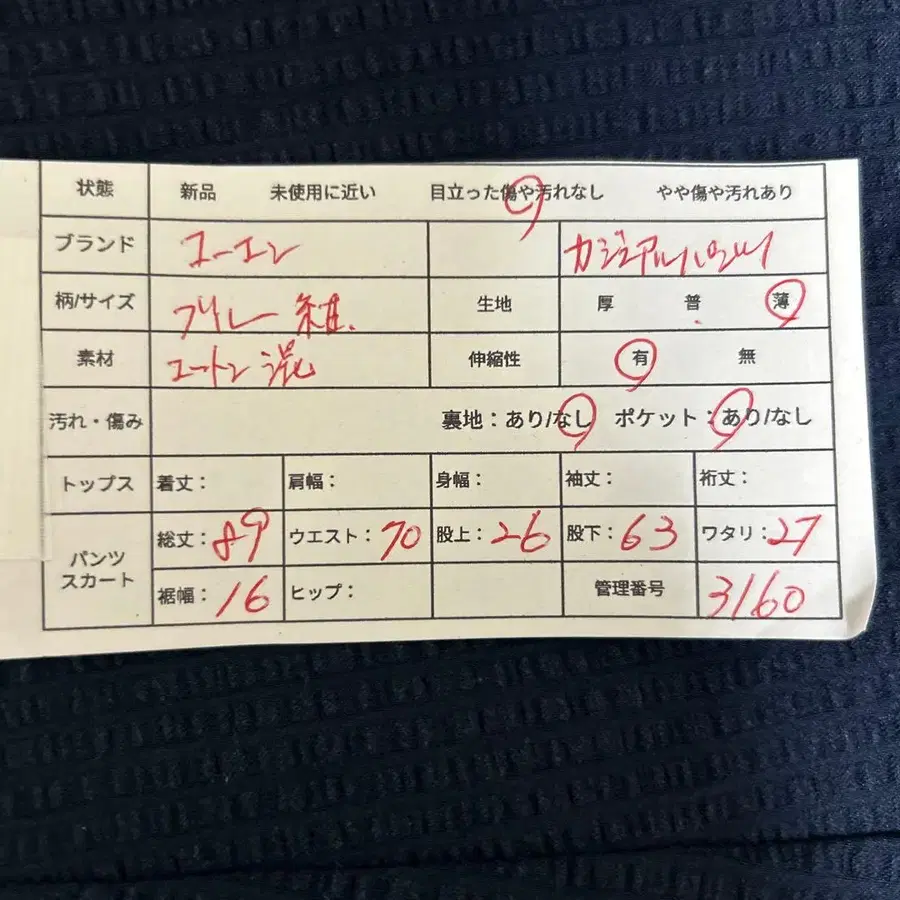 状態 新品 未使用に近い 目立った傷や汚れなし やや傷や汚れあり
ブランド コーエン カジュアルパンツ
柄/サイズ フリー 紺 生地 厚 普 薄
素材 コットン 混 伸縮性 有 無
汚れ・傷み 裏地：あり/なし ポケット：あり/なし
トップス 着丈： 肩幅： 身幅： 袖丈： 裄丈：
パンツ スカート 総丈：89 ウエスト：70 股上：26 股下：63 ワタリ：27
裾幅：16 ヒップ： 管理番号 3160